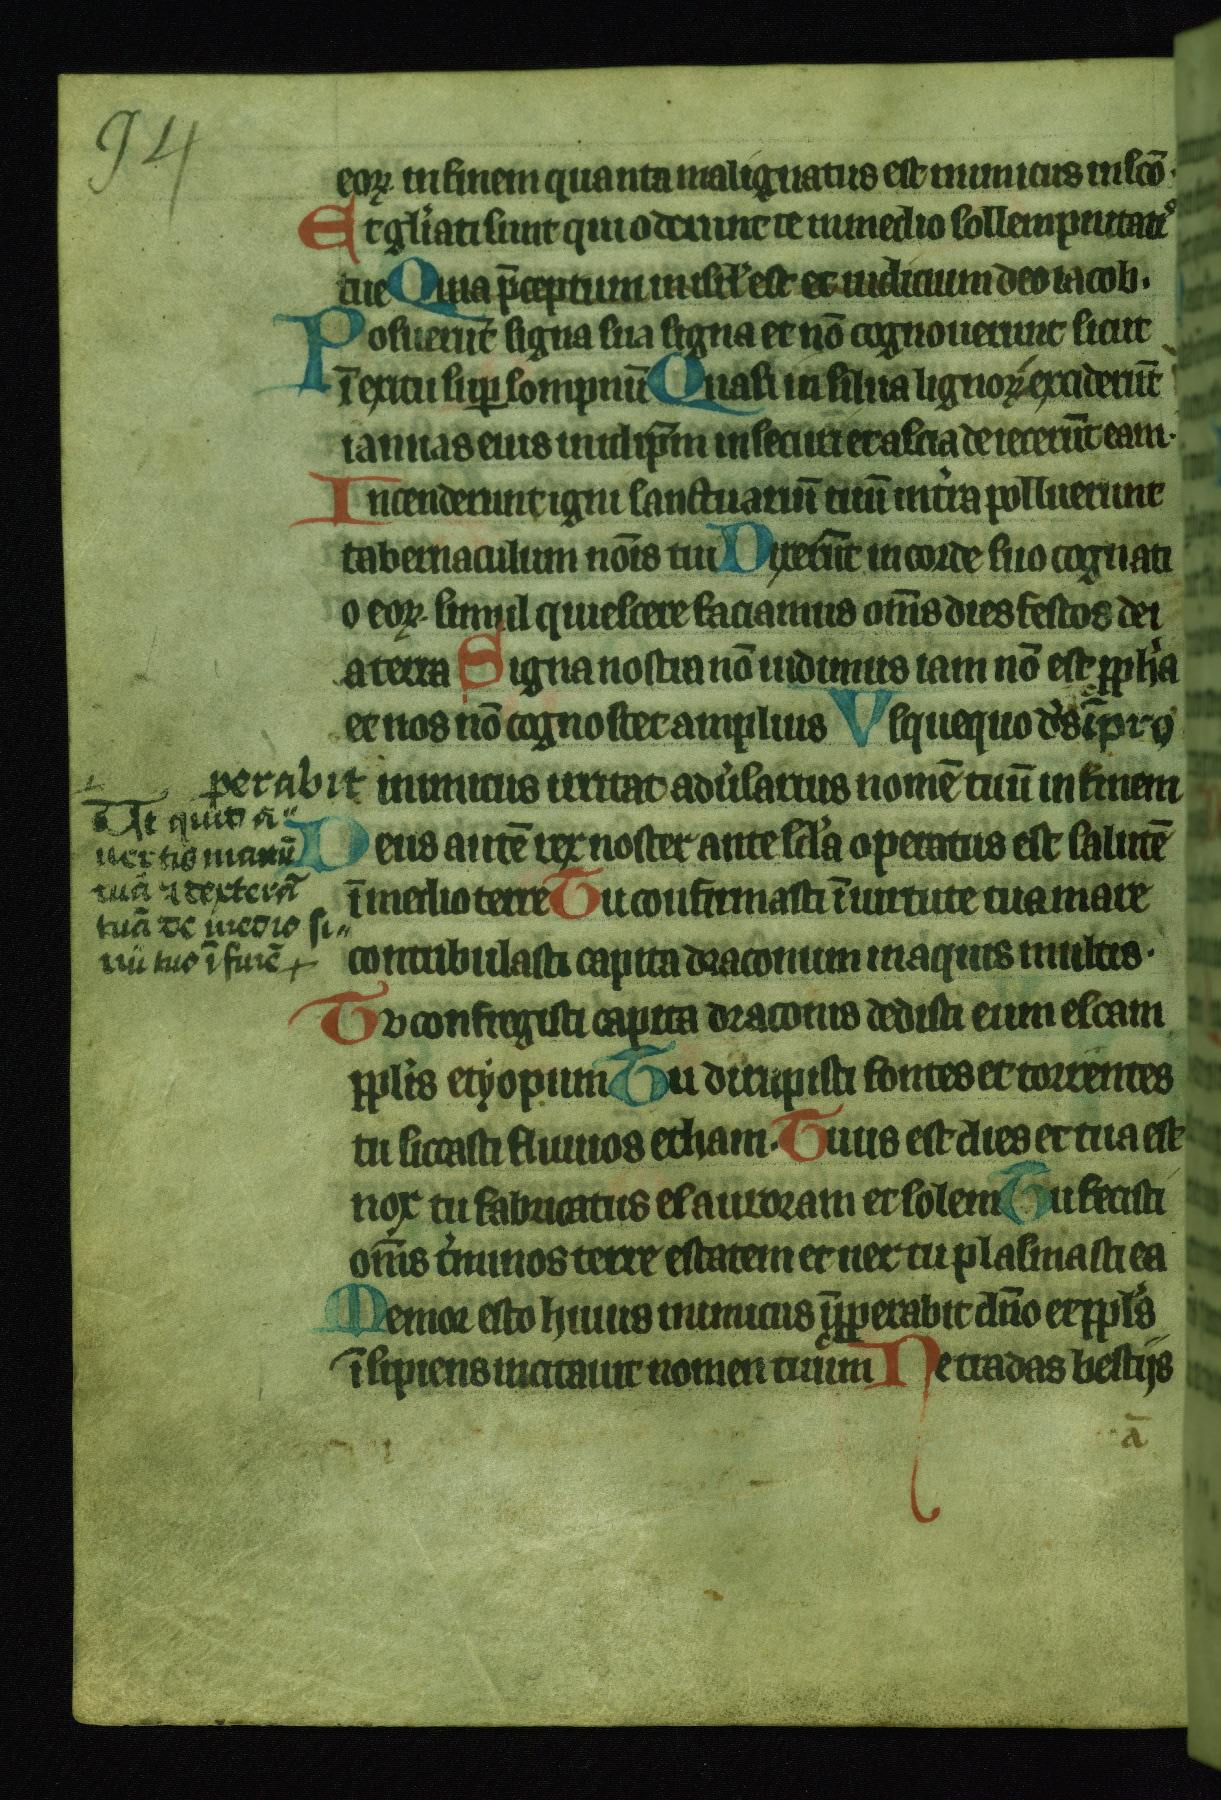 94
eoꝝ in finem quanta malignatus est inimicus in scō.
Et gl̄iati sunt qui oderunt te in medio sollempnitatis
tue Quia p̄ceptum in isrl̄ est et iudicium deo iacob.
Posuerūt signa sua signa et nō cognouerunt sicut
ī exitu suꝑ sompnū Quasi in silua lignoꝝ exciderūt
ianuas eius in idip̄m in securi et ascia deiecerūt eam.
Incenderunt igni sanctuariū tuū in tr̄a polluerunt
tabernaculum nōis tui Dixerūt in corde suo cognati
o eoꝝ simul quiescere faciamus om̄s dies festos dei
a terra Signa nostra nō uidimus iam nō est ꝓph̄a
et nos nō cognoscet amplius Vsquequo ds̄ īpro
perabit inimicus irritat adūsarius nomē tuū in finem
Vt quid a
uertis manū
tuā ⁊ dexterā
tuā de medio si
nu tuo ī finē +
Deus autē rex noster ante scl̄a operatus est salutē
ī medio terre Tu confirmasti ī uirtute tua mare
contribulasti capita draconum in aquis multis.
Tv confregisti capita draconis dedisti eum escam
ppl̄is etyopum Tu dirupisti fontes et torrentes
tu siccasti fluuios etham. Tuus est dies et tua est
nox tu fabricatus es auroram et solem Tu fecisti
om̄s t̄minos terre estatem et uer tu plasmasti ea
Memor esto huius inimicus īꝓperabit dn̄o et ppl̄s
īsipiens incitauit nomen tuum Ne tradas bestijs
ā